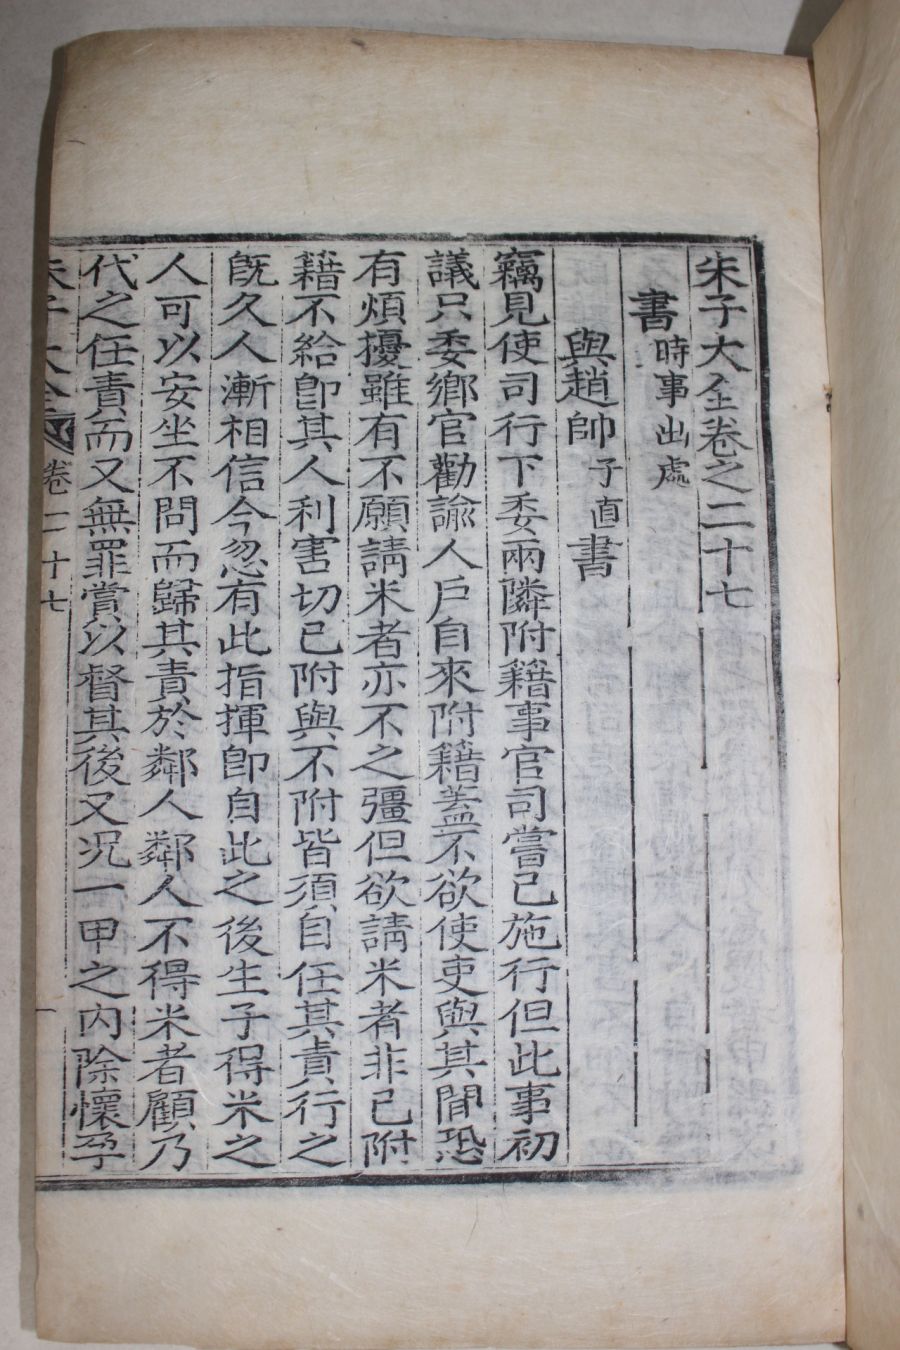 朱子大全卷之二十七
書時事出處
與趙帥子直書
竊見使司行下委兩隣附籍事官司嘗已施行但此事初
議只委鄉官勸諭人戶自來附籍蓋不欲使吏與其間恐
有煩擾雖有不願請米者亦不之彊但欲請米者非已附
籍不給卽其人利害切已附與不附皆須自任其責行之
旣久人漸相信今忽有此指揮卽自此之後生子得米之
人可以安坐不問而歸其責於鄰人鄰人不得米者顧乃
代之任責而又無罪賞以督其後又况一甲之內除懷孕
朱子大全 卷二十七 一